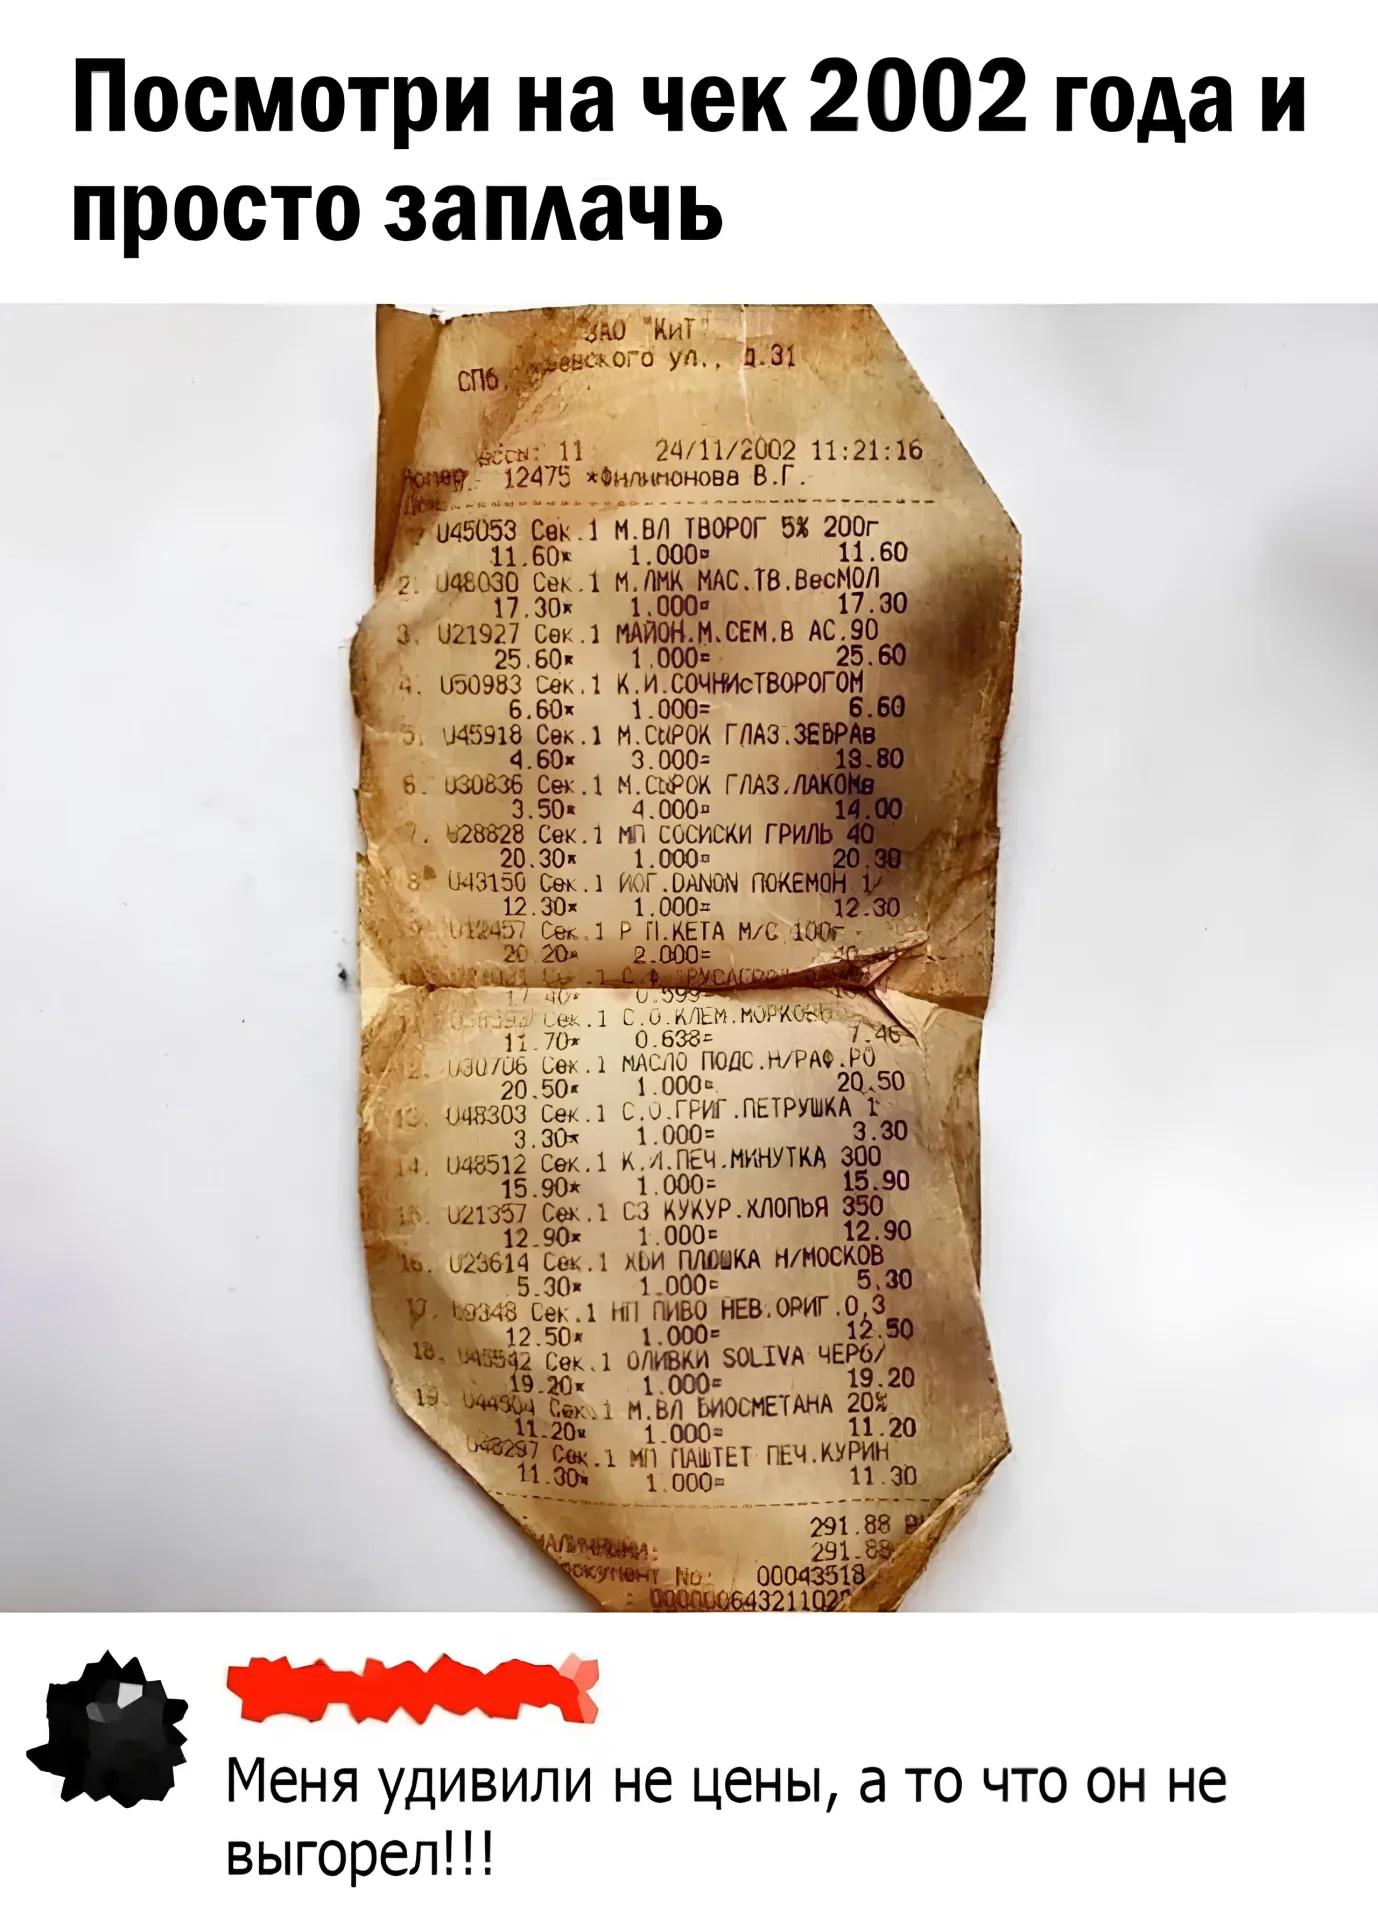 Посмотри на чек 2002 года и
просто заплачь
ЗАО "КиТ"
СПб, ул., д.31
11 24/11/2002 11:21:16
12475 *Филимонова В.Г.
U45053 Сек.1 М.ВЛ ТВОРОГ 5% 200г
11.60* 1.000= 11.60
2. U48030 Сек.1 М.ЛМК МАС.ТВ.ВесМОЛ
17.30* 1.000= 17.30
3. U21927 Сек.1 МАЙОН.М.СЕМ.В АС.90
25.60* 1.000= 25.60
4. U50983 Сек.1 К.И.СОЧНИсТВОРОГОМ
6.60* 1.000= 6.60
5. U45918 Сек.1 М.СЫРОК ГЛАЗ.ЗЕБРАв
4.60* 3.000= 13.80
6. U30836 Сек.1 М.СЫРОК ГЛАЗ.ЛАКОМв
3.50* 4.000= 14.00
7. U28828 Сек.1 МП СОСИСКИ ГРИЛЬ 40
20.30* 1.000= 20.30
8. U43150 Сек.1 ЙОГ.DANON ПОКЕМОН 1/
12.30* 1.000= 12.30
9. U12457 Сек.1 Р П.КЕТА М/С 100г
20.20* 2.000=
17.40* 0.599=
Сек.1 С.О.КЛЕМ.МОРКОВЬ
11.70* 0.638= 7.46
12. U30706 Сек.1 МАСЛО ПОДС.Н/РАФ.РО
20.50* 1.000= 20.50
13. U48303 Сек.1 С.О.ГРИГ.ПЕТРУШКА 1
3.30* 1.000= 3.30
14. U48512 Сек.1 К.И.ПЕЧ.МИНУТКА 300
15.90* 1.000= 15.90
15. U21357 Сек.1 СЗ КУКУР.ХЛОПЬЯ 350
12.90* 1.000= 12.90
16. U23614 Сек.1 ХБИ ПЛЮШКА Н/МОСКОВ
5.30* 1.000= 5.30
17. U9348 Сек.1 НП ПИВО НЕВ.ОРИГ.0,3
12.50* 1.000= 12.50
18. U45542 Сек.1 ОЛИВКИ SOLIVA ЧЕРб/
19.20* 1.000= 19.20
19. U44504 Сек.1 М.ВЛ БИОСМЕТАНА 20%
11.20* 1.000= 11.20
U48297 Сек.1 МП ПАШТЕТ ПЕЧ.КУРИН
11.30* 1.000= 11.30
291.88
НАЛИЧНЫМИ: 291.88
Документ No: 00043518
Меня удивили не цены, а то что он не
выгорел!!!